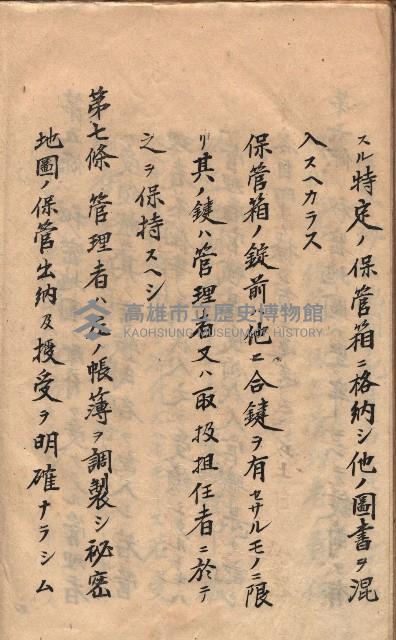 スル特定ノ保管箱ニ格納シ他ノ圖書ヲ混
入スヘカラス
保管箱ノ錠前ハ他ニ合鍵ヲ有セサルモノニ限
リ其ノ鍵ハ管理者又ハ取扱担任者ニ於テ
之ヲ保持スヘシ
第七條 管理者ハ左ノ帳薄ヲ調製シ秘密
地圖ノ保管出納及授受ヲ明確ナラシム
高雄市立歷史博物館
KAOHSIUNG MUSEUM OF HISTORY